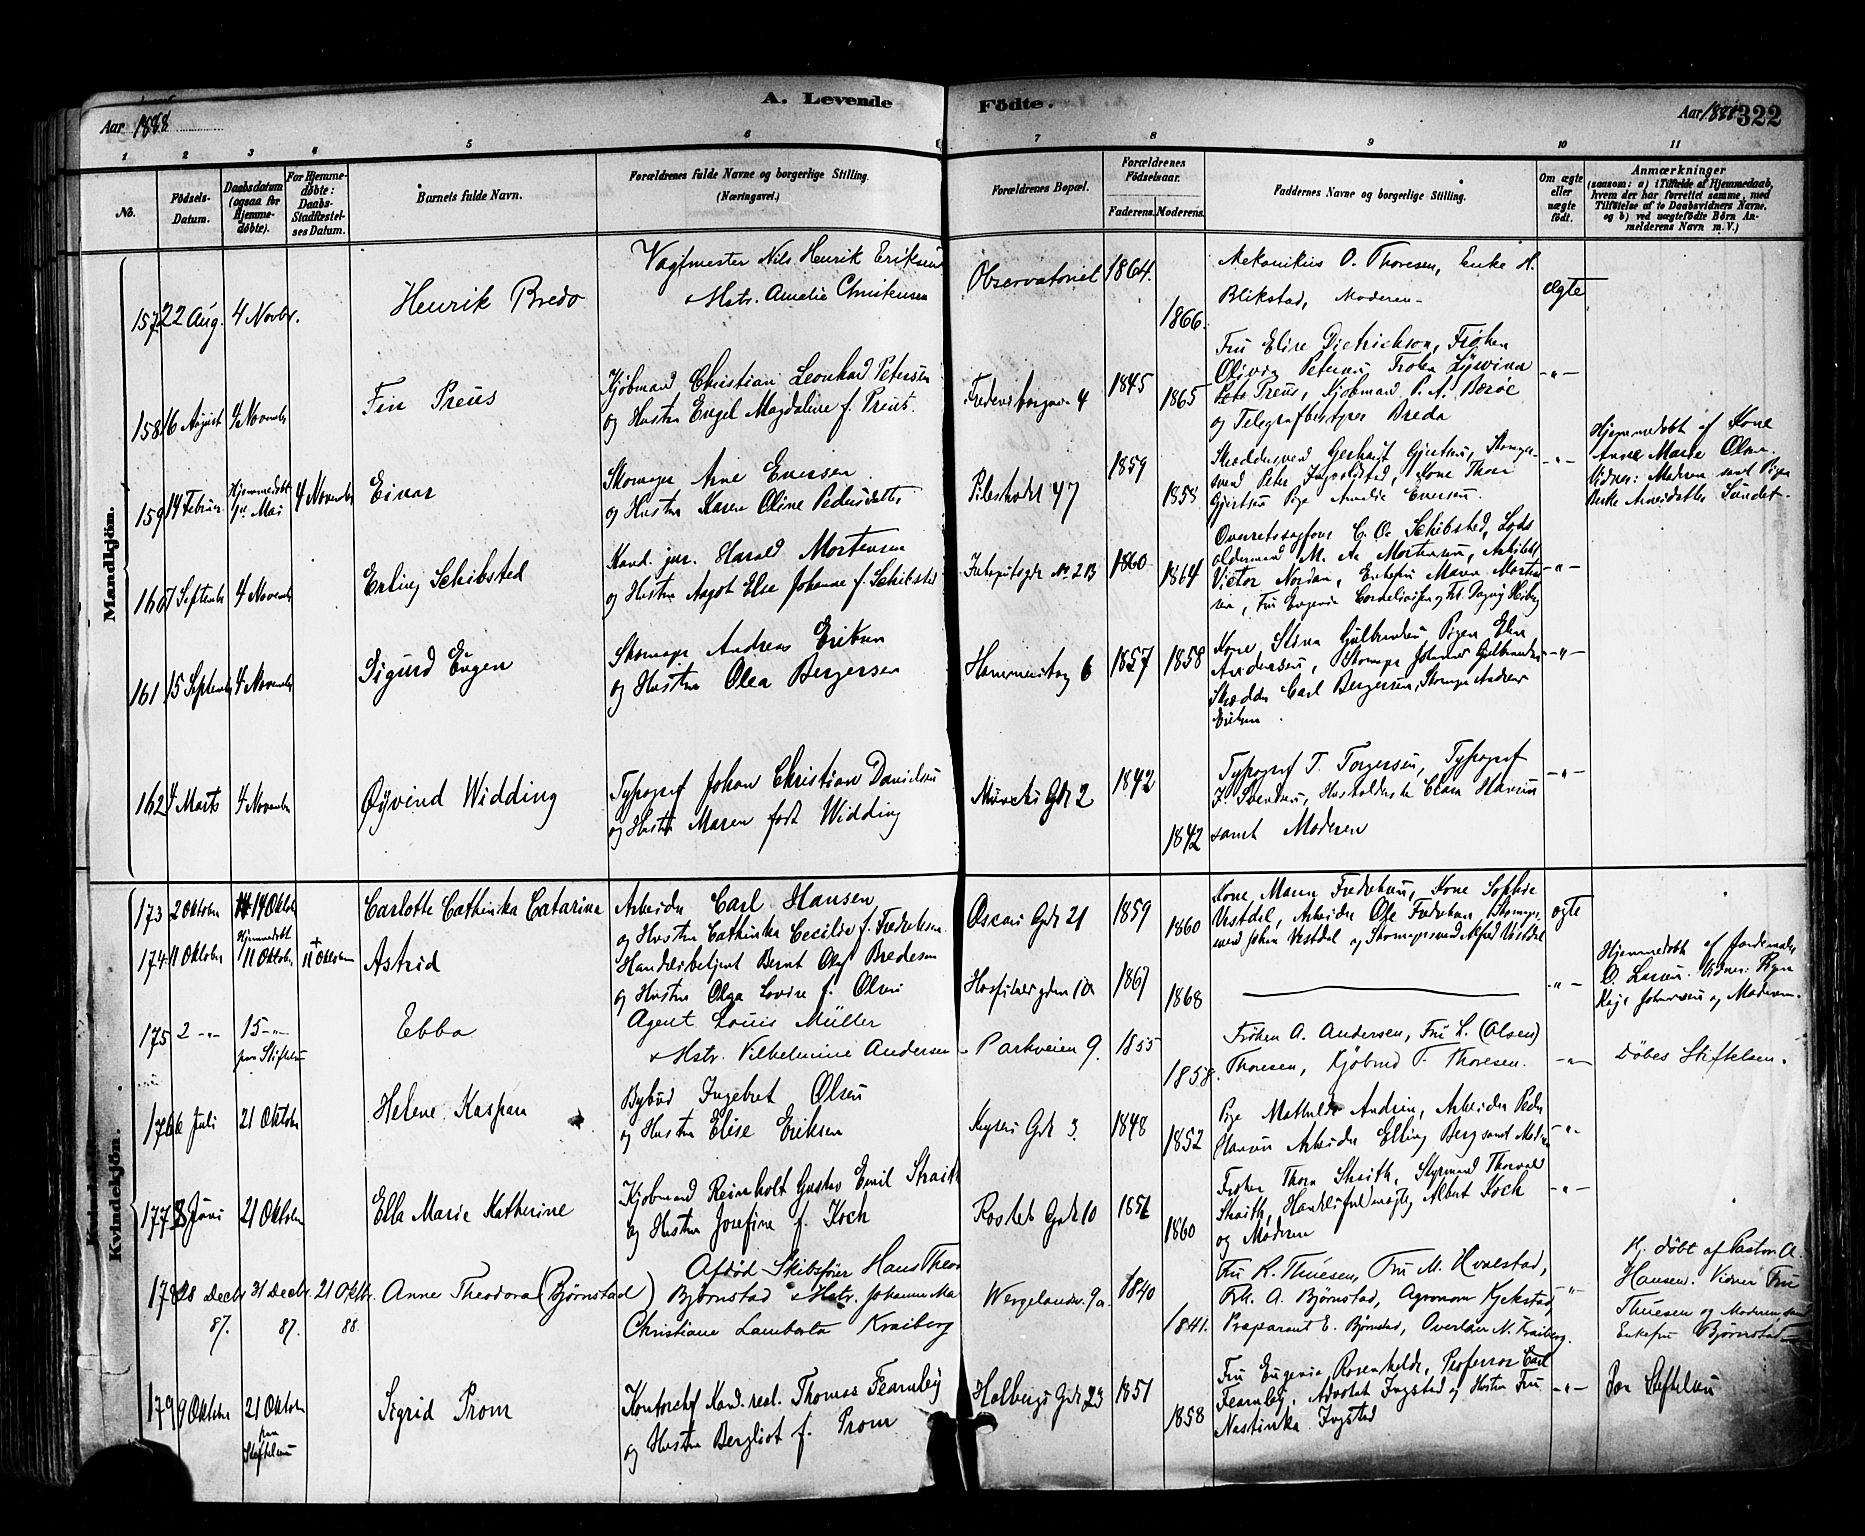 A. Levende Födte.
Aar 1888
Aar 1888 322
1 2 3 4 5 6 7 8 9 10 11
No.
Födsels-Datum.
Daabsdatum (ogsaa for Hjemmedöbte).
For Hjemmedöbte: Daabs-Stadfæstelses Datum.
Barnets fulde Navn.
Forældrenes fulde Navne og borgerlige Stilling. (Næringsvei.)
Forældrenes Bopæl.
Forældrenes Födselsaar.
Faderens. Moderens.
Faddernes Navne og borgerlige Stilling.
Om ægte eller uægte födt.
Anmærkninger
(saasom: a) i Tilfælde af Hjemmedaab, hvem der har forrettet samme, med Tilföielse af to Daabsvidners Navne, og b) ved uægtefödte Börn Anmelderens Navn m. V.)
Mandkjön.
157 22 Aug. 4 Novbr. Henrik Bredo
Vagtmester Nils Henrik Eriksen
& Hstr. Amalie Christensen
Observatoriet 1864. 1866.
Mekanikus O. Thoresen, Enke H.
Blikstad, Moderen - Ægte
158 16 August 4 November Fin Preus
Kjøbmand Christian Leonhard Petersen
og Hustru Engel Magdalene f. Preus.
4 1845 1865
Fru Elise Dietrichson, Frøken
Preus, Kjøbmand P. A.
og Telegrafbestyrer Breda -"-
159 14 Februar Hjemmedøbt Mai 4 November Einar
Skomager Arne Eversen
og Hustru Karen Oline Pedersdatter
Pilestrædet 47 1859 1858
Skræddersvend Gerhart Gjertsen,
Pige Amalie Eversen. -"-
Hjemmedøbt af Kone
Anne Marie Olsen.
Vidner: Moderen samt Pigen
160 7 September 4 November Erling Schibsted
Kand. jur. Harald Mortensen
og Hustru Aagot Else Johanne f. Schibsted
No 2B 1860 1864
Overetssagfører Schibsted, Lods
oldermand M. A. Mortensen, Arkitekt
Victor Nordan, Enkefru Maren Morten
sen, Fru Eugenie -"-
161 15 September 4 November Sigurd Eugen
Skomager Andreas Eriksen
og Hustru Olea Bergersen
Hammerstag 6 1857 1858
Kone Stina Gulbrandsen, Pigen Elen
Andersen, Skomager Johannes Gulbrandsen
Skrædder Carl Bergersen, Skomager Andreas
Eriksen. -"-
162 4 Marts 4 November Øyvind Widding
Typograf Johan Christian Danielsen
og Hustru Maren født Widding
Gde 2 1842 1842
Typograf T. Torgersen, Typograf
samt Moderen -"-
Kvindekjön.
173 2 Oktober 14 Oktob Carlotte Cathinka Catarina
Arbeider Carl Hansen
og Hustru Cathinka Cecilie f. Fredriksen
Oscars Gde 21 1859 1860
Kone Maren Fredriksen, Kone Sophie
Vestdel, Arbeider Ole Fredriksen, Skomager
svend Johan Vestdal og Skomagersvend Alfred Vestdal
ægte
174 11 Oktober Hjemmedøbt 11 Oktober + 11 Oktober Astrid
Handelsbetjent Bernt Olaf Bredesen
og Hustru Olga Lovise f. Olsen
10 1867 1868 -"-
Hjemmedøbt af Jordemoder
O. Larsen. Vidner: Pigen
Kaja Johansen og Moderen.
175 2 -"- 15 -"- paa Stiftelsen Ebba
Agent Louis Müller
& Hstr. Vilhelmine Andersen
Parkveien 9. 1855 1858.
Frøken A. Andersen, Fru L. (Olsen)
Thoresen, Kjøbmd T. Thoresen. -"-
Döbes Stiftelsen.
176 6 Juli 21 Oktober Helene Kaspara
Bybud Ingebret Olsen
og Hustru Elise Eriksen
Keysers Gde 3. 1848 1852
Pige Mathilde Andrin, Arbeider Peder
Hansen Arbeider Elling Berg samt Moderen -"-
177 8 Juni 21 Oktober Ella Marie Katherine
Kjøbmand Reinholt Gustav Emil Straith
og Hustru Josefine f. Koch
Gde 10 1856 1860
Frøken Thora Straith, Styrmand Thorvald
Straith, Handelsfuldmægtig Albert Koch
og Moderen -"-
178 28 Decbr. 87. 31 Decbr. 87. 21 Oktbr. 88. Anne Theodora (Bjørnstad)
Afdød Skibsfører Hans Theo
Bjørnstad & Hstr. Johanne Ma
Christiane Lamberta Kraiberg
Wergelandsv. 9a. 1840 1841.
Fru R. Thuesen, Fru M. Hovelstad,
Frk. A. Bjørnstad, Agronom Kjekstad,
Præparant E. Bjørnstad, Overlærer N. Kraiberg. -"-
Hj. døbt af Pastor A.
Hansen. Vidner Fru
Thuesen og Moderen, samt
Enkefru Bjørnstad
179 9 Oktober 21 Oktober paa Stiftelsen Sigrid Prom
Kontorchef Kand. real. Thomas Fearnley
og Hustru Bergliot f. Prom
Holbergs Gde 23 1851 1858
Fru Eugenie Rosenkilde, Professor Carl
Fearnley, Advokat Ingstad og Hustru Fru
Nastinka Ingstad -"-
Paa Stiftelsen